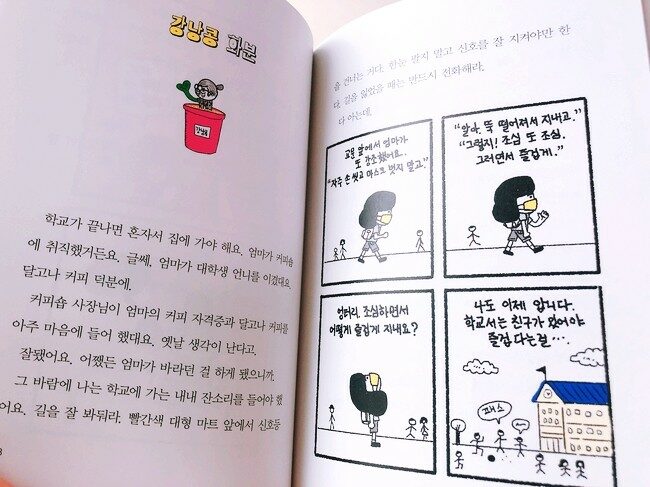 강낭콩 화분
강낭콩
학교가 끝나면 혼자서 집에 가야 해요. 엄마가 커피숍
에 취직했거든요. 글쎄, 엄마가 대학생 언니를 이겼대요.
달고나 커피 덕분에.
커피숍 사장님이 엄마의 커피 자격증과 달고나 커피를
아주 마음에 들어 했대요. 옛날 생각이 난다고.
잘됐어요. 어쨌든 엄마가 바라던 걸 하게 됐으니까.
그 바람에 나는 학교에 가는 내내 잔소리를 들어야 했
어요. 길을 잘 봐둬라. 빨간색 대형 마트 앞에서 신호등
을 건너는 거다. 한눈 팔지 말고 신호를 잘 지켜야만 한
다. 길을 잃었을 때는 반드시 전화해라.
다 아는데.
교문 앞에서 엄마가
또 강조했어요.
"자주 손 씻고 마스크 벗지 말고."
"알아. 뚝 떨어져서 지내고."
"그렇지! 조심 또 조심.
그러면서 즐겁게."
엉터리. 조심하면서
어떻게 즐겁게 지내요?
나도 이제 압니다.
학교서는 친구가 있어야
즐겁다는걸….
패스